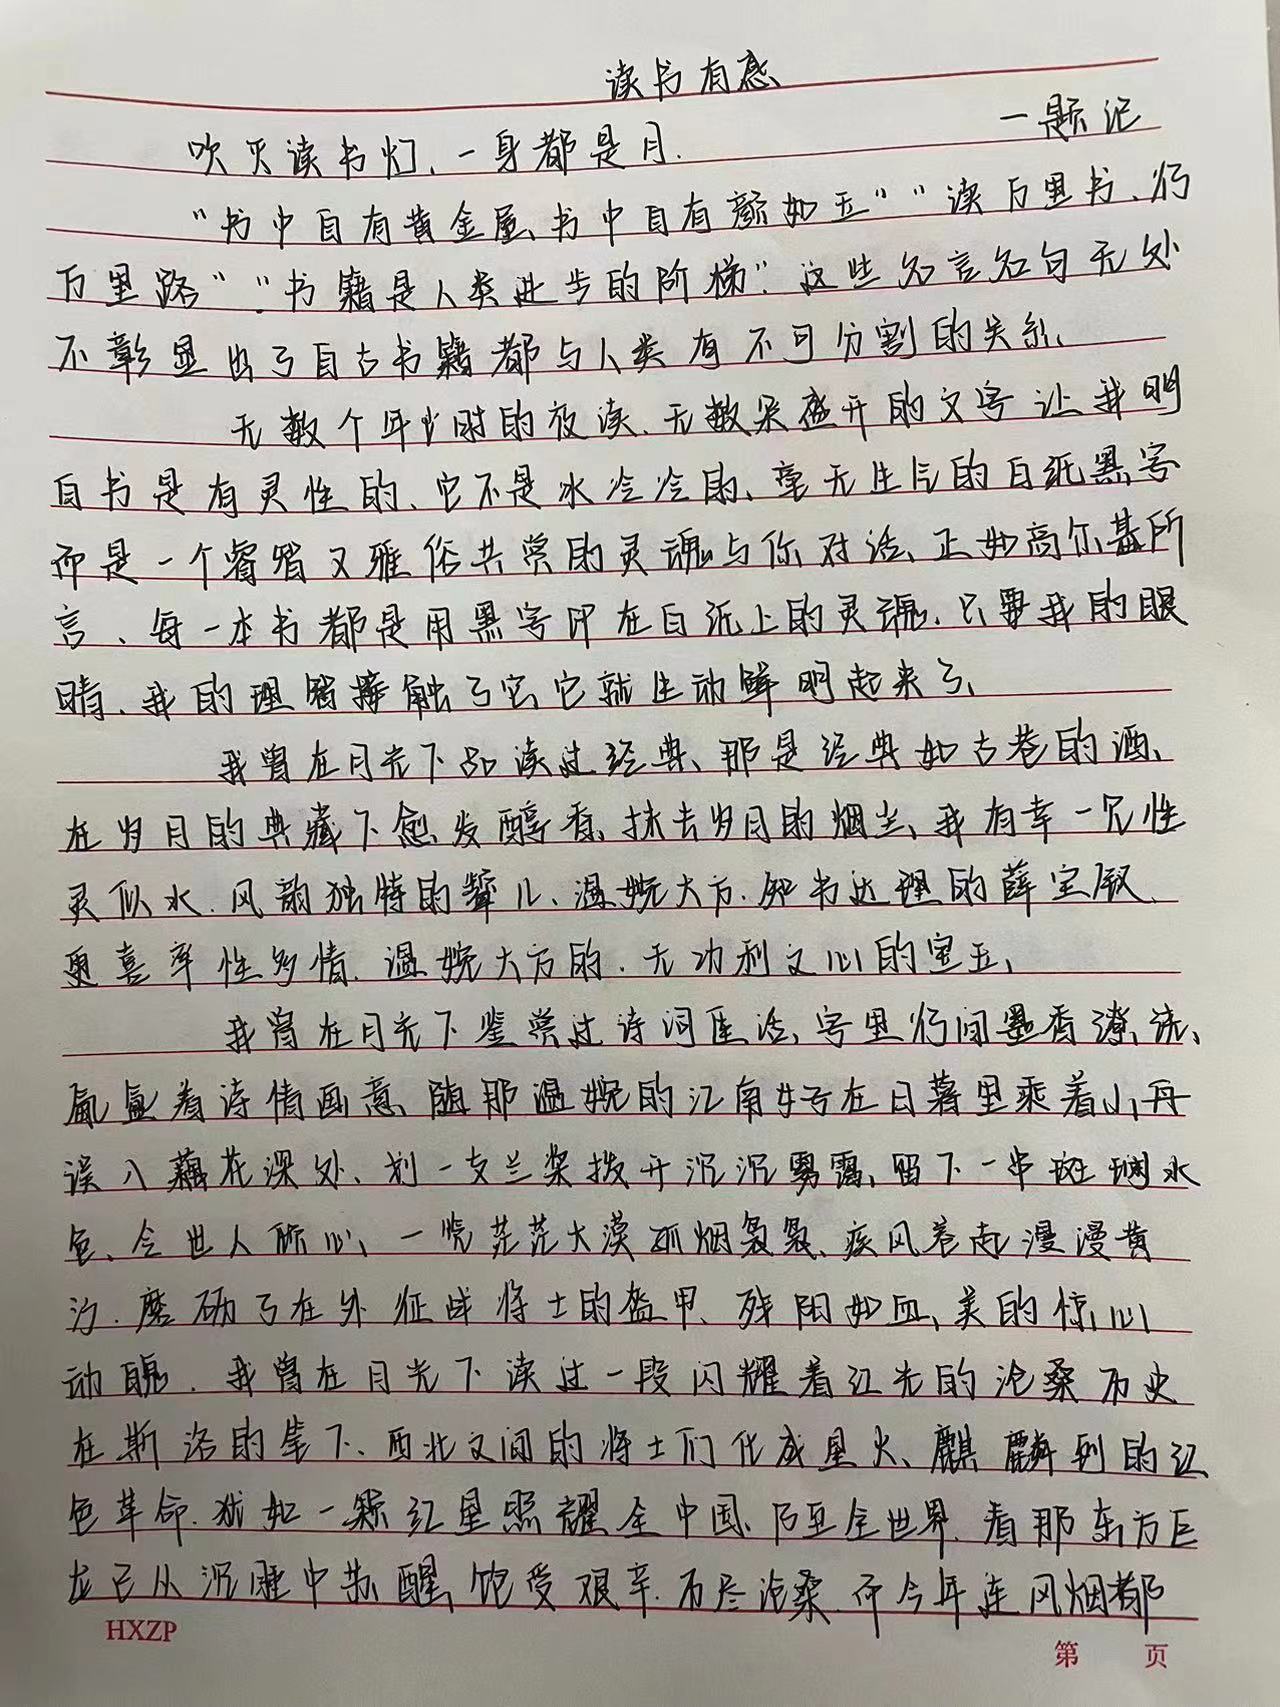 读书有感
吹灭读书灯、一身都是月.
一题记
"书中自有黄金屋、书中自有颜如玉" "读万里书、行
万里路" "书籍是人类进步的阶梯". 这些名言名句无处
不彰显出了自古书籍都与人类有不可分割的关系、
无数个年少时的夜读、无数朵盛开的文字让我明
白书是有灵性的、它不是冰冷冷的、毫无生气的白纸黑字
而是一个睿智又雅俗共赏的灵魂与你对话、正如高尔基所
言、每一本书都是用黑字印在白纸上的灵魂、只要我的眼
睛、我的理智接触了它、它就生动鲜明起来了、
我曾在月光下品读过经典、那是经典如古巷的酒、
在岁月的典藏下愈发醇香、抹去岁月的烟尘、我有幸一见性
灵似水、风韵独特的颦儿、温婉大方、知书达理的薛宝钗、
更喜率性多情、温婉大方的、无功利之心的宝玉、
我曾在月光下鉴赏过诗词医活、字里行间墨香潦洗、
氤氲着诗情画意、随那温婉的江南女子在日暮里乘着小舟
误入藕花深处、划一支兰桨拨开沉沉雾霭、留下一串斑斓水
色、令世人倾心、一览茫茫大漠孤烟袅袅、疾风卷起漫漫黄
沙、磨砺了在外征战将士的盔甲、残阳如血、美的惊心
动魄、我曾在月光下读过一段闪耀着红光的沧桑历史
在斯洛的笔下、西北之间的将士们化成星火、麒麟到的红
色革命、犹如一颗红星照耀全中国、乃至全世界、看那东方巨
龙已从沉睡中苏醒、饱受艰辛、历尽沧桑、而今年连风烟都
HXZP
第 页